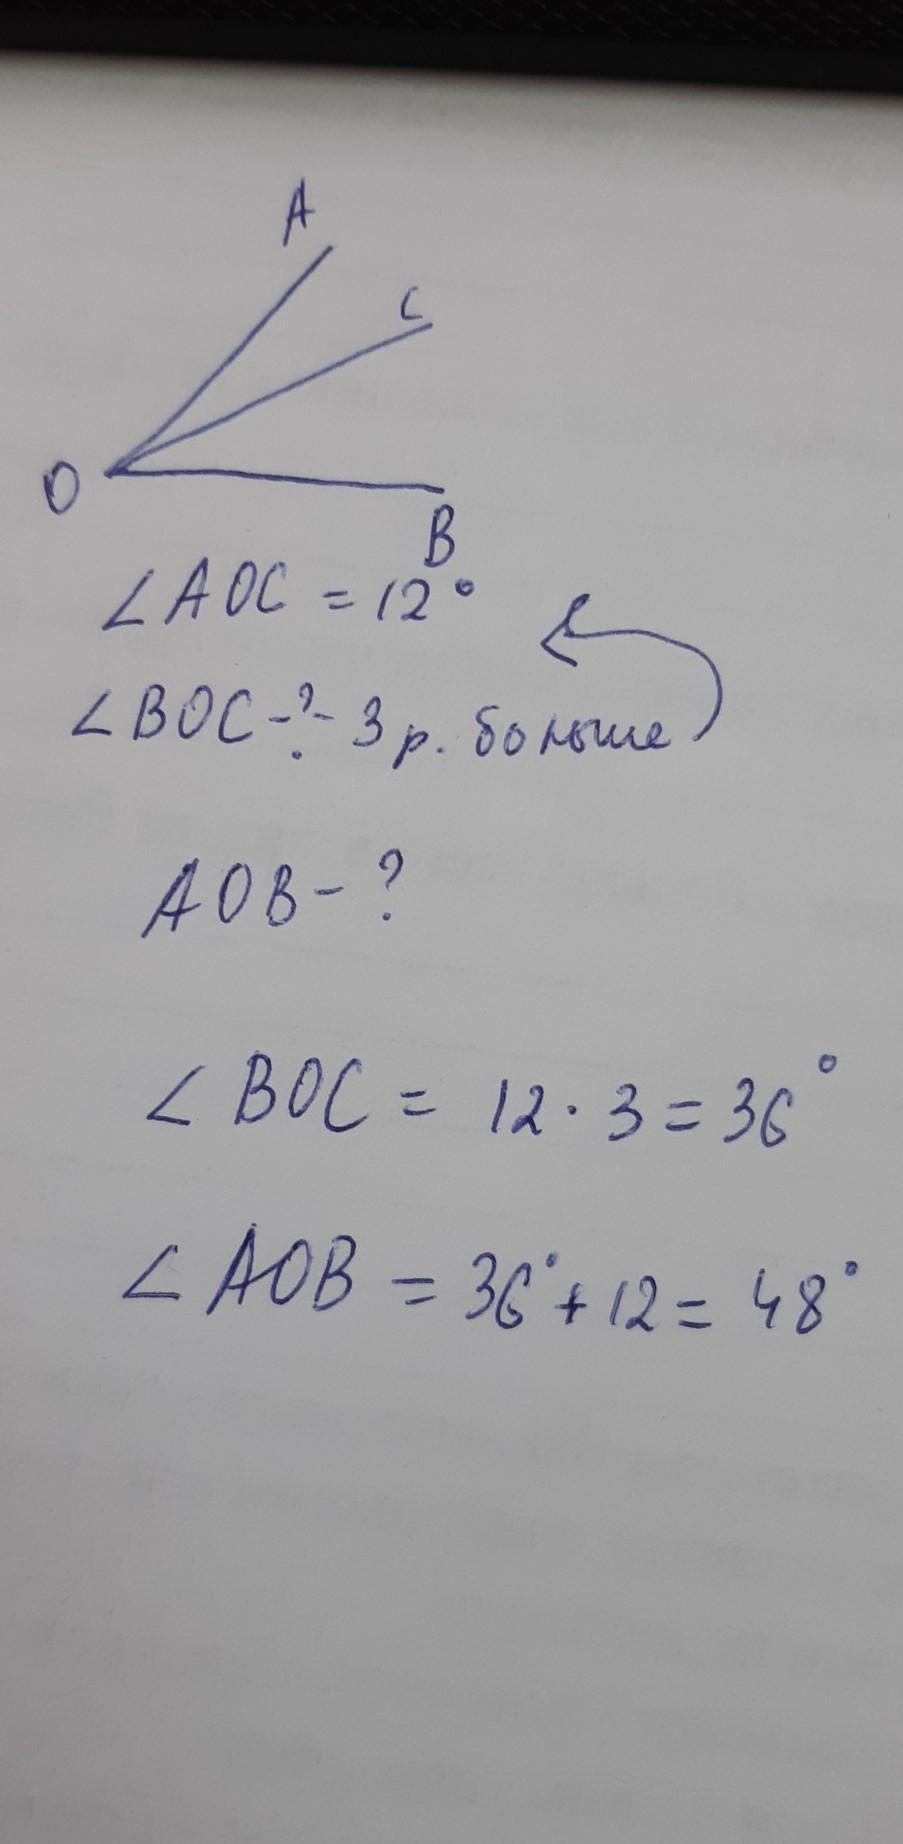 A
C
O
B
∠AOC = 12°
∠BOC - ? - 3 р. больше
AOB - ?
∠ BOC = 12 · 3 = 36°
∠ AOB = 36° + 12 = 48°